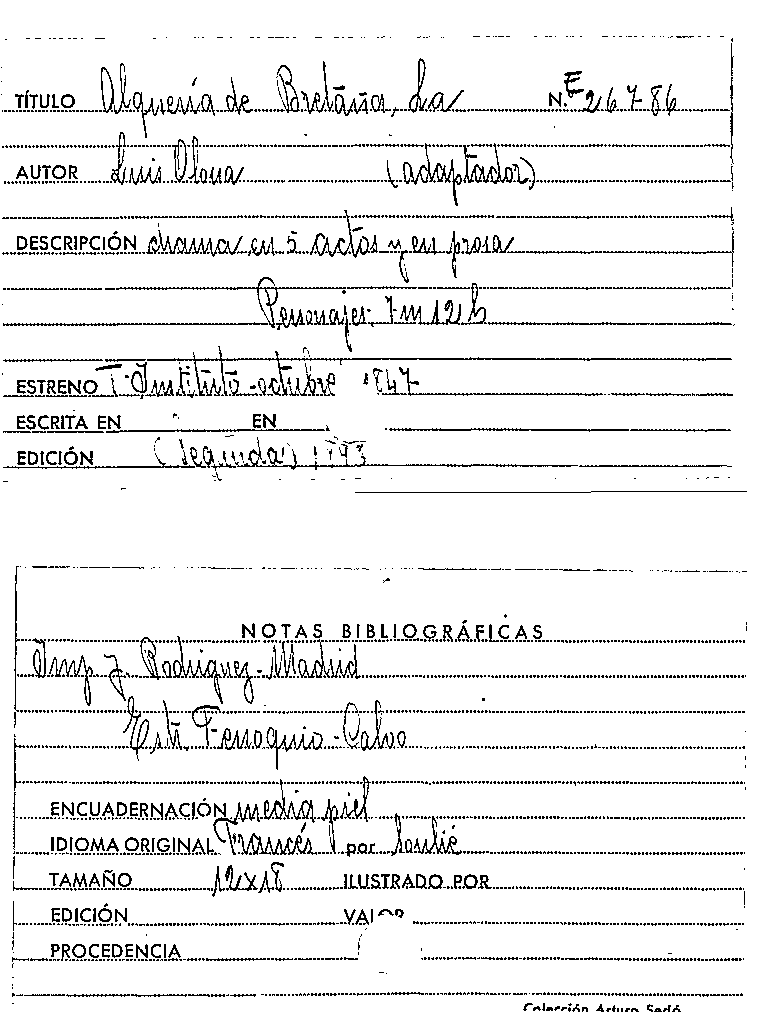 TÍTULO Alquería de Bretaña, La N.E 267-86
AUTOR Luis Olona (adaptador)
DESCRIPCIÓN drama en 5 actos y en prosa
Personajes: 7 m 12 h
ESTRENO T. Instituto - octubre 1847
ESCRITA EN EN
EDICIÓN (Segunda)
NOTAS BIBLIOGRÁFICAS
Imp J. Rodriguez - Madrid
Calvo
ENCUADERNACIÓN media piel
IDIOMA ORIGINAL Francés por Soulié
TAMAÑO 12x18 ILUSTRADO POR
EDICIÓN VALOR
PROCEDENCIA
Colección Arturo Sedó